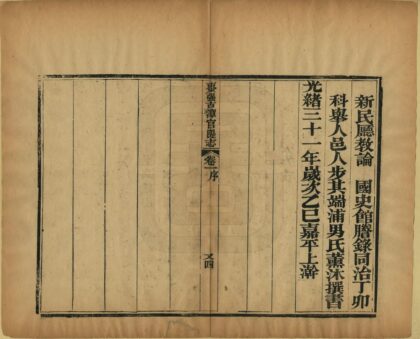 新民廳教諭　國史館謄錄同治丁卯
科舉人邑人步其端浦男氏薰沐撰書
光緒三十一年歲次乙巳嘉平上澣
棗強古漳官隄志　卷一序　又四